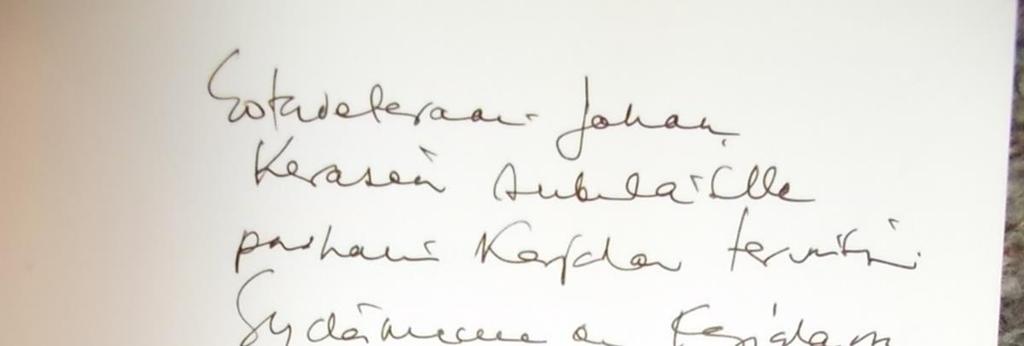 Sotaveteraani Johan
Kerasen sukulaisille
parhain Karjalan terveisin
Sydämeme on Karjalan